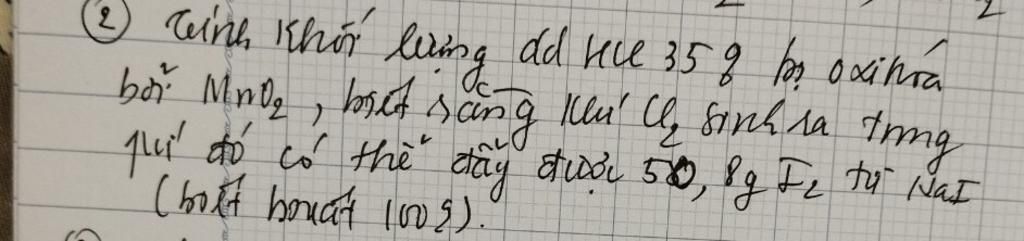 ② Tính khối lượng dd HCl 35 g bị oxi hóa
bởi MnO2, biết rằng khí Cl2 sinh ra trong
pứ đó có thể đẩy được 50,8g I2 từ NaI
(biết hsuất 100%).